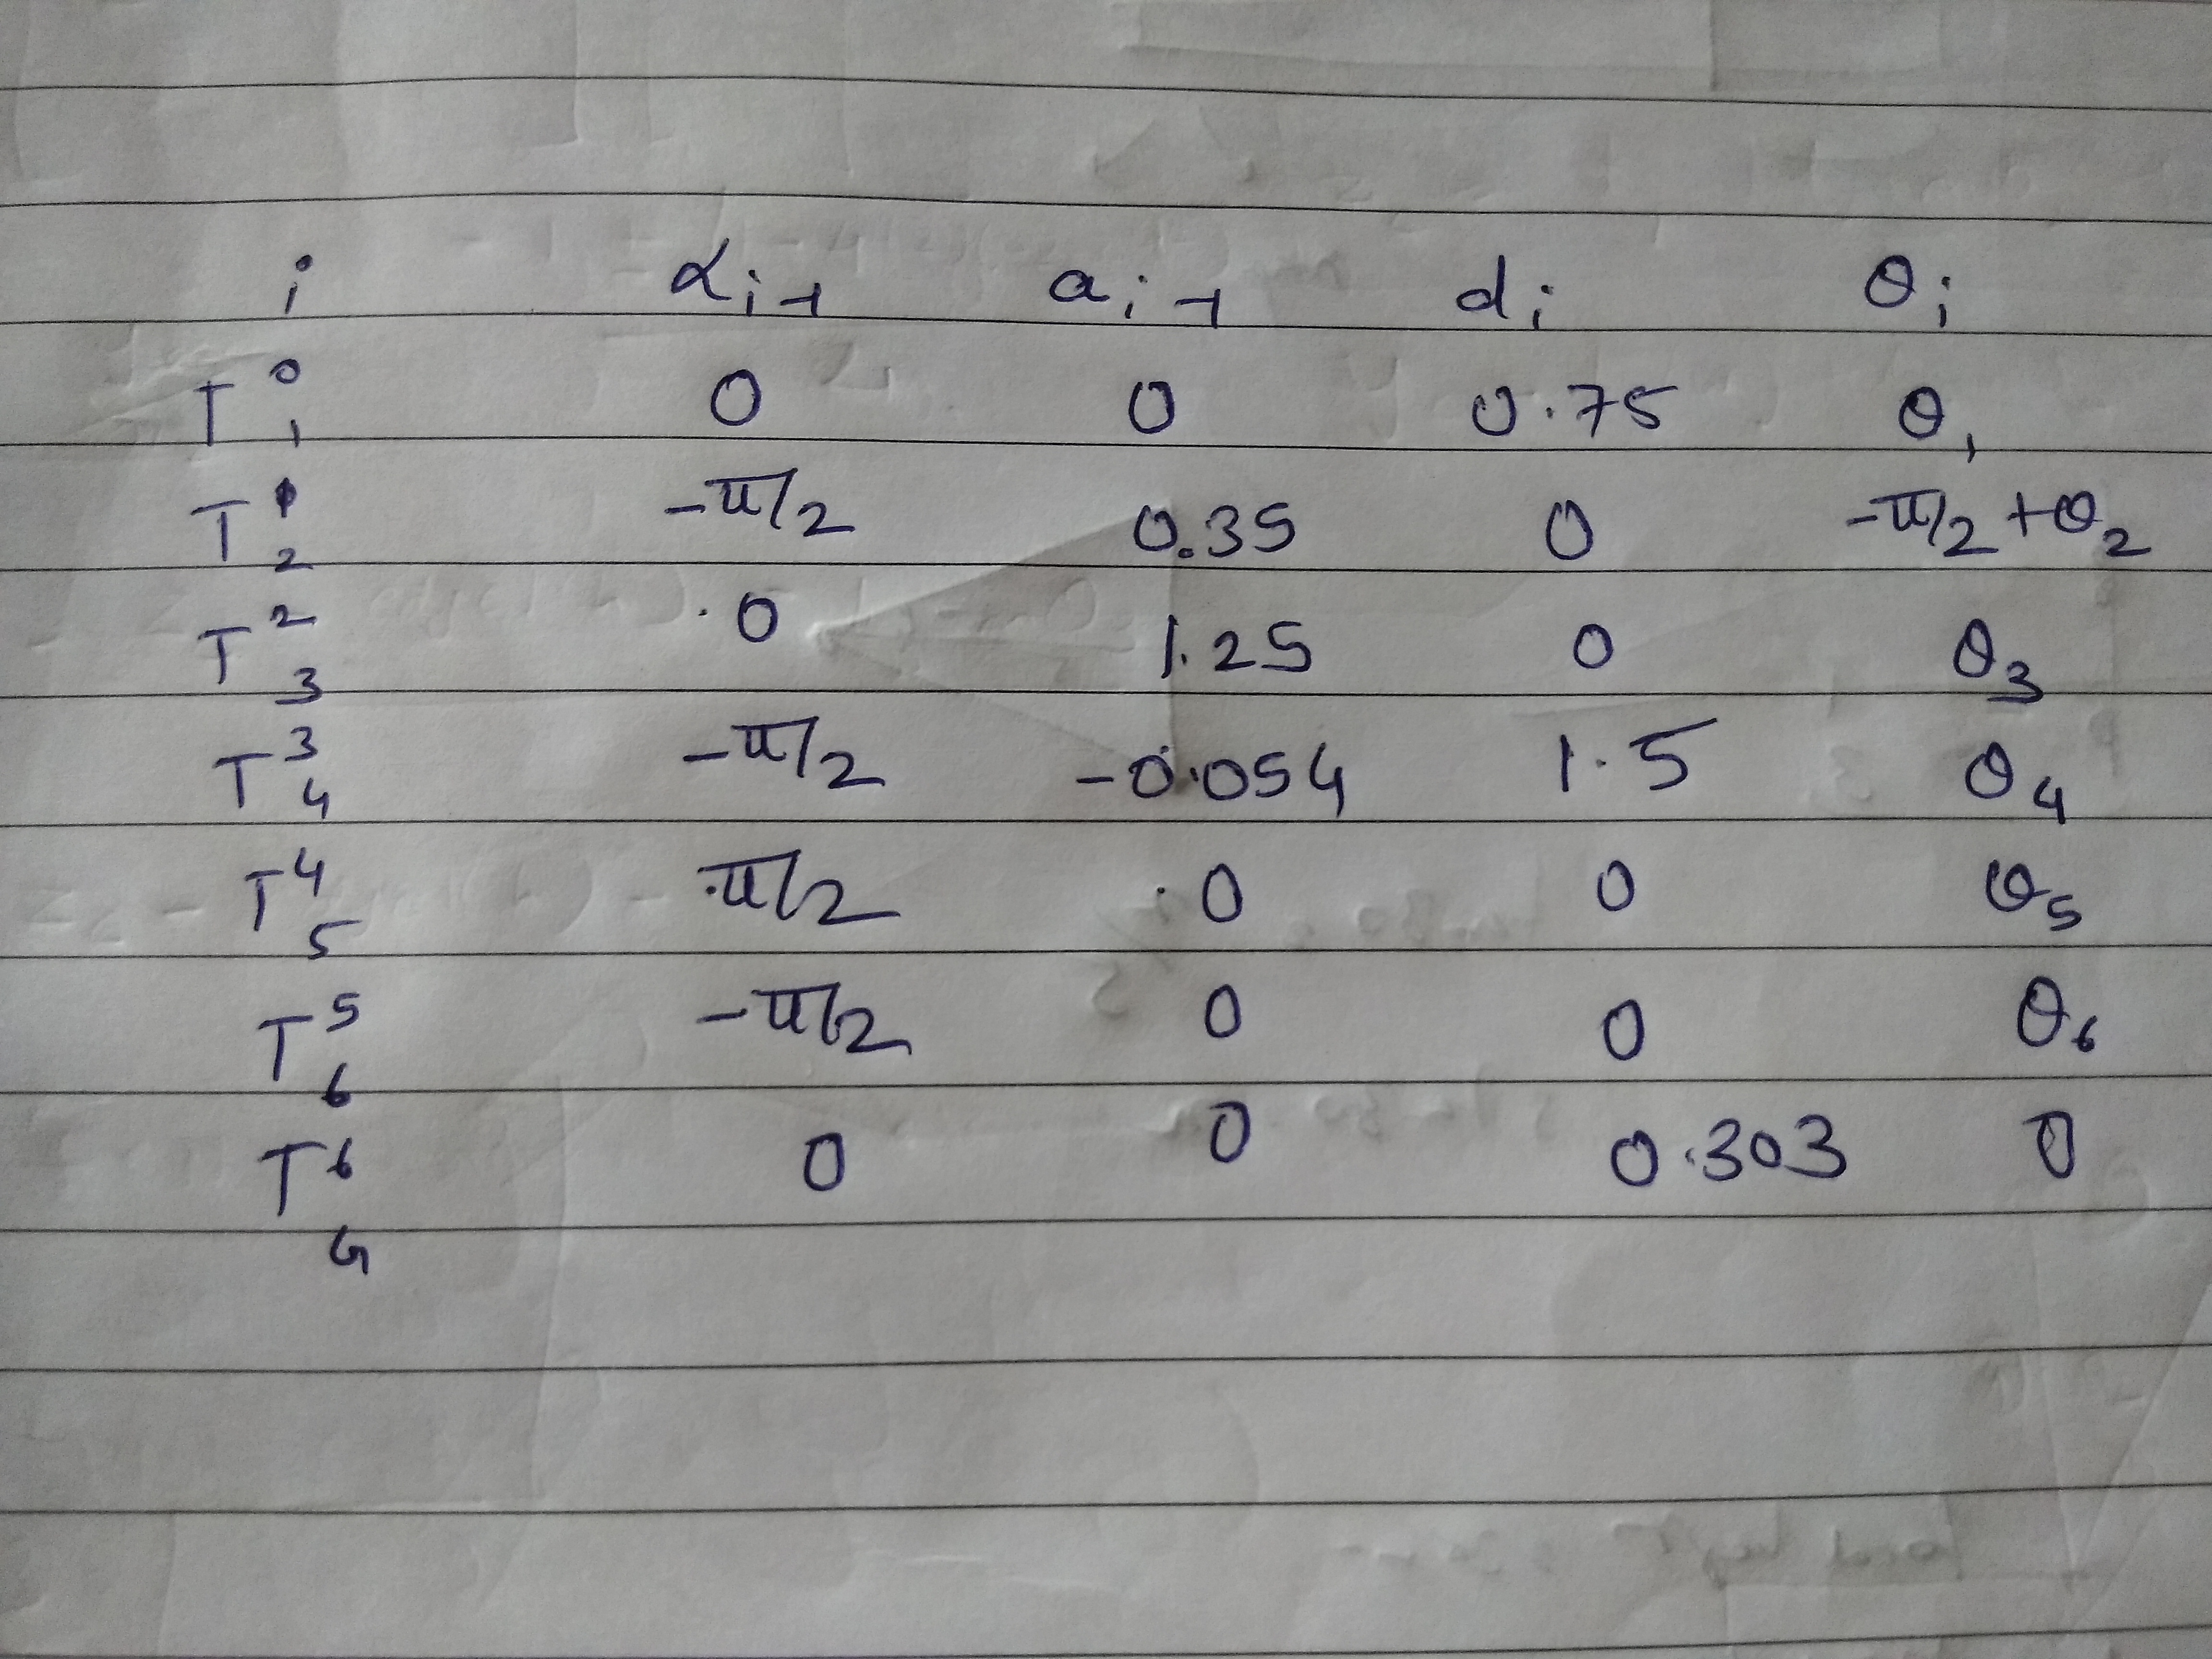 i αᵢ₋₁ aᵢ₋₁ dᵢ θᵢ
T⁰₁ 0 0 0.75 θ₁
T¹₂ -π/2 0.35 0 -π/2+θ₂
T²₃ 0 1.25 0 θ₃
T³₄ -π/2 -0.054 1.5 θ₄
T⁴₅ π/2 0 0 θ₅
T⁵₆ -π/2 0 0 θ₆
T⁶G 0 0 0.303 0